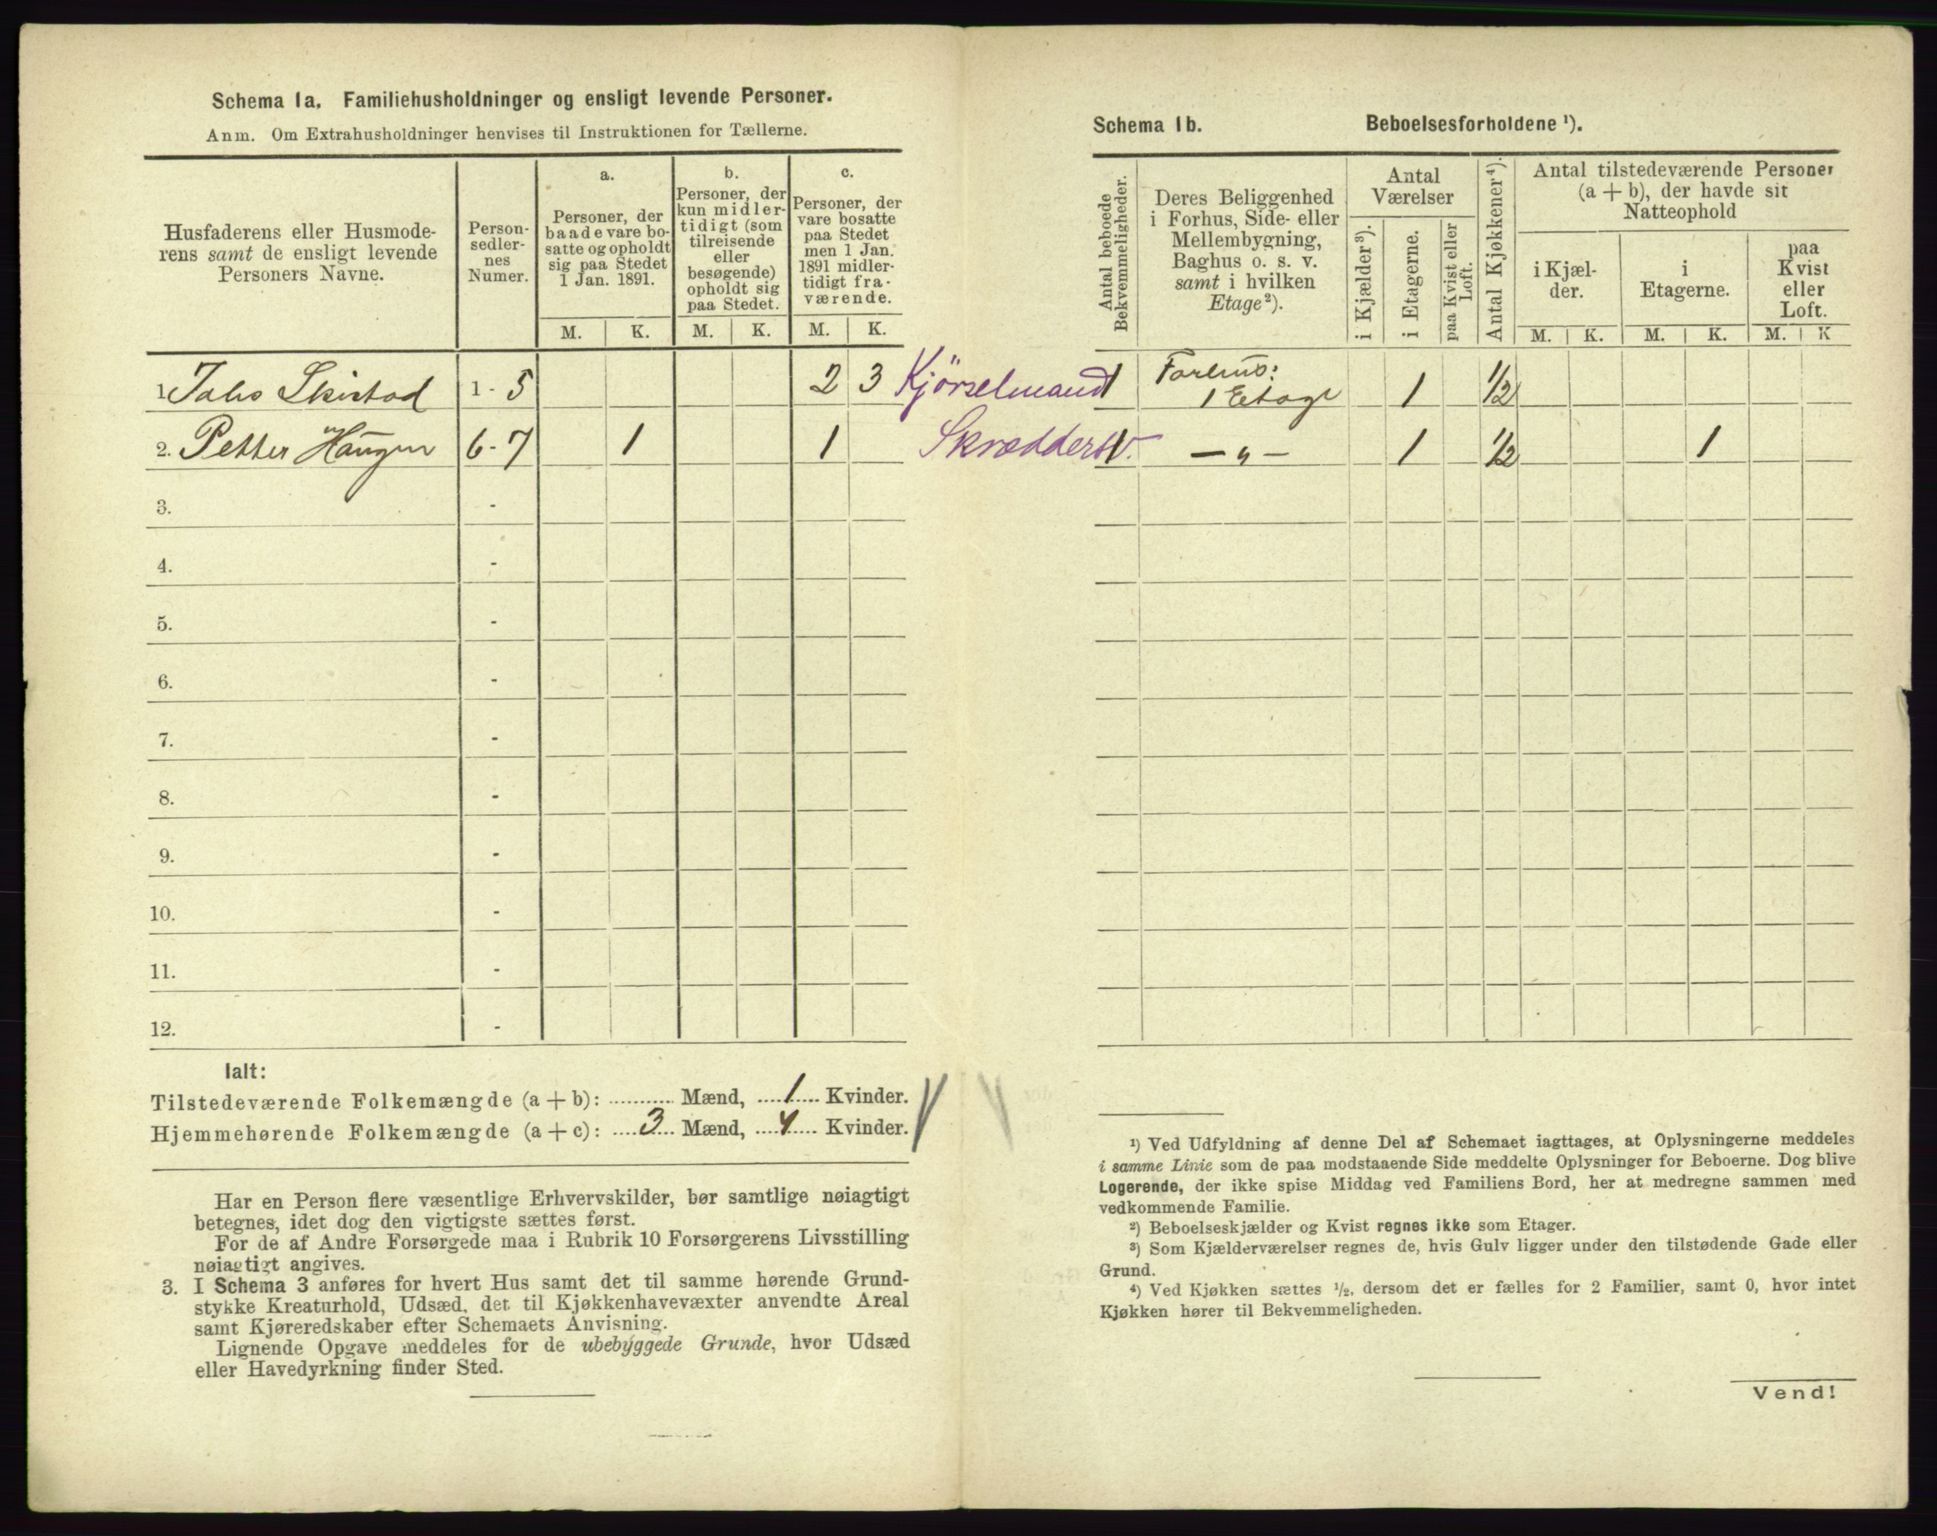 Schema 1a. Familiehusholdninger og ensligt levende Personer.
Anm. Om Extrahusholdninger henvises til Instruktionen for Tællerne.
Husfaderens eller Husmode-
rens samt de ensligt levende
Personers Navne.
Person-
sedler-
nes
Numer.
a.
Personer, der
baade vare bo-
satte og opholdt
sig paa Stedet
1 Jan. 1891.
b.
Personer, der
kun midler-
tidigt (som
tilreisende
eller
besøgende)
opholdt sig
paa Stedet.
c.
Personer, der
vare bosatte
paa Stedet
men 1 Jan.
1891 midler-
tidigt fra-
værende.
M. K. M. K. M. K.
1. Skistad 1 - 5 2 3 Kjörselmand
2. Petter Haugen 6 - 7 1 1 Skræddersv.
3. -
4. -
5. -
6. -
7. -
8. -
9. -
10. -
11. -
12. -
Ialt:
Tilstedeværende Folkemængde (a + b): ........... Mænd, 1 Kvinder.
Hjemmehørende Folkemængde (a + c): 3 Mænd, 4 Kvinder.
Har en Person flere væsentlige Erhvervskilder, bør samtlige nøiagtigt
betegnes, idet dog den vigtigste sættes først.
For de af Andre Forsørgede maa i Rubrik 10 Forsørgerens Livsstilling
nøiagtigt angives.
3. I Schema 3 anføres for hvert Hus samt det til samme hørende Grund-
stykke Kreaturhold, Udsæd, det til Kjøkkenhavevæxter anvendte Areal
samt Kjøreredskaber efter Schemaets Anvisning.
Lignende Opgave meddeles for de ubebyggede Grunde, hvor Udsæd
eller Havedyrkning finder Sted.
Schema 1b. Beboelsesforholdene ¹).
Antal beboede
Bekvemmeligheder.
Deres Beliggenhed
i Forhus, Side- eller
Mellembygning,
Baghus o. s. v.
samt i hvilken
Etage²).
Antal
Værelser
i Kjælder³).
i Etagerne.
paa Kvist eller
Loft.
Antal Kjøkkener⁴).
Antal tilstedeværende Personer
(a + b), der havde sit
Natteophold
i Kjæl-
der.
i
Etagerne.
paa
Kvist
eller
Loft.
M. K. M. K. M. K
1 Forhus:
1 Etage 1 1/2
1 — " — 1 1/2 1
¹) Ved Udfyldning af denne Del af Schemaet iagttages, at Oplysningerne meddeles
i samme Linie som de paa modstaaende Side meddelte Oplysninger for Beboerne. Dog blive
Logerende, der ikke spise Middag ved Familiens Bord, her at medregne sammen med
vedkommende Familie.
²) Beboelseskjælder og Kvist regnes ikke som Etager.
³) Som Kjælderværelser regnes de, hvis Gulv ligger under den tilstødende Gade eller
Grund.
⁴) Ved Kjøkken sættes ½, dersom det er fælles for 2 Familier, samt 0, hvor intet
Kjøkken hører til Bekvemmeligheden.
Vend!